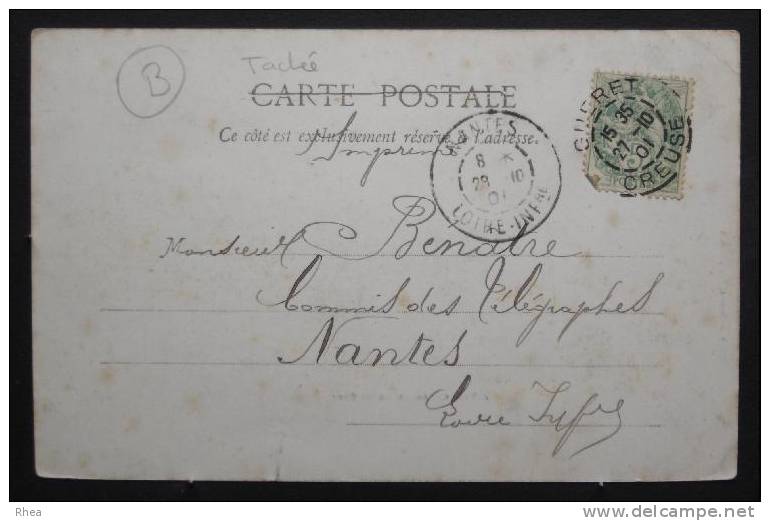 B
Tachée
CARTE POSTALE
Ce côté est exclusivement réservé à l'adresse.
Imprimé
NANTES
8
28 10
01
LOIRE-INFRE
GUERET
15 35
27 10
01
CREUSE
Monsieur Benatre
Commis des Télégraphes
Nantes
Loire Infre
Rhea
www.delcampe.net